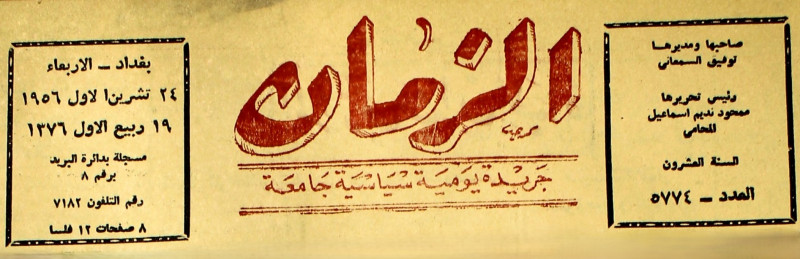 صاحبها ومديرها
توفيق السمعاني
رئيس تحريرها
ممحود نديم اسماعيل
المحامي
السنة العشرون
العدد - ٥٧٧٤
الزمان
جريدة يومية سياسية جامعة
بغداد - الاربعاء
٢٤ تشرين الاول ١٩٥٦
١٩ ربيع الاول ١٣٧٦
مسجلة بدائرة البريد
برقم ٨
رقم التلفون ٧١٨٢
٨ صفحات ١٢ فلسا